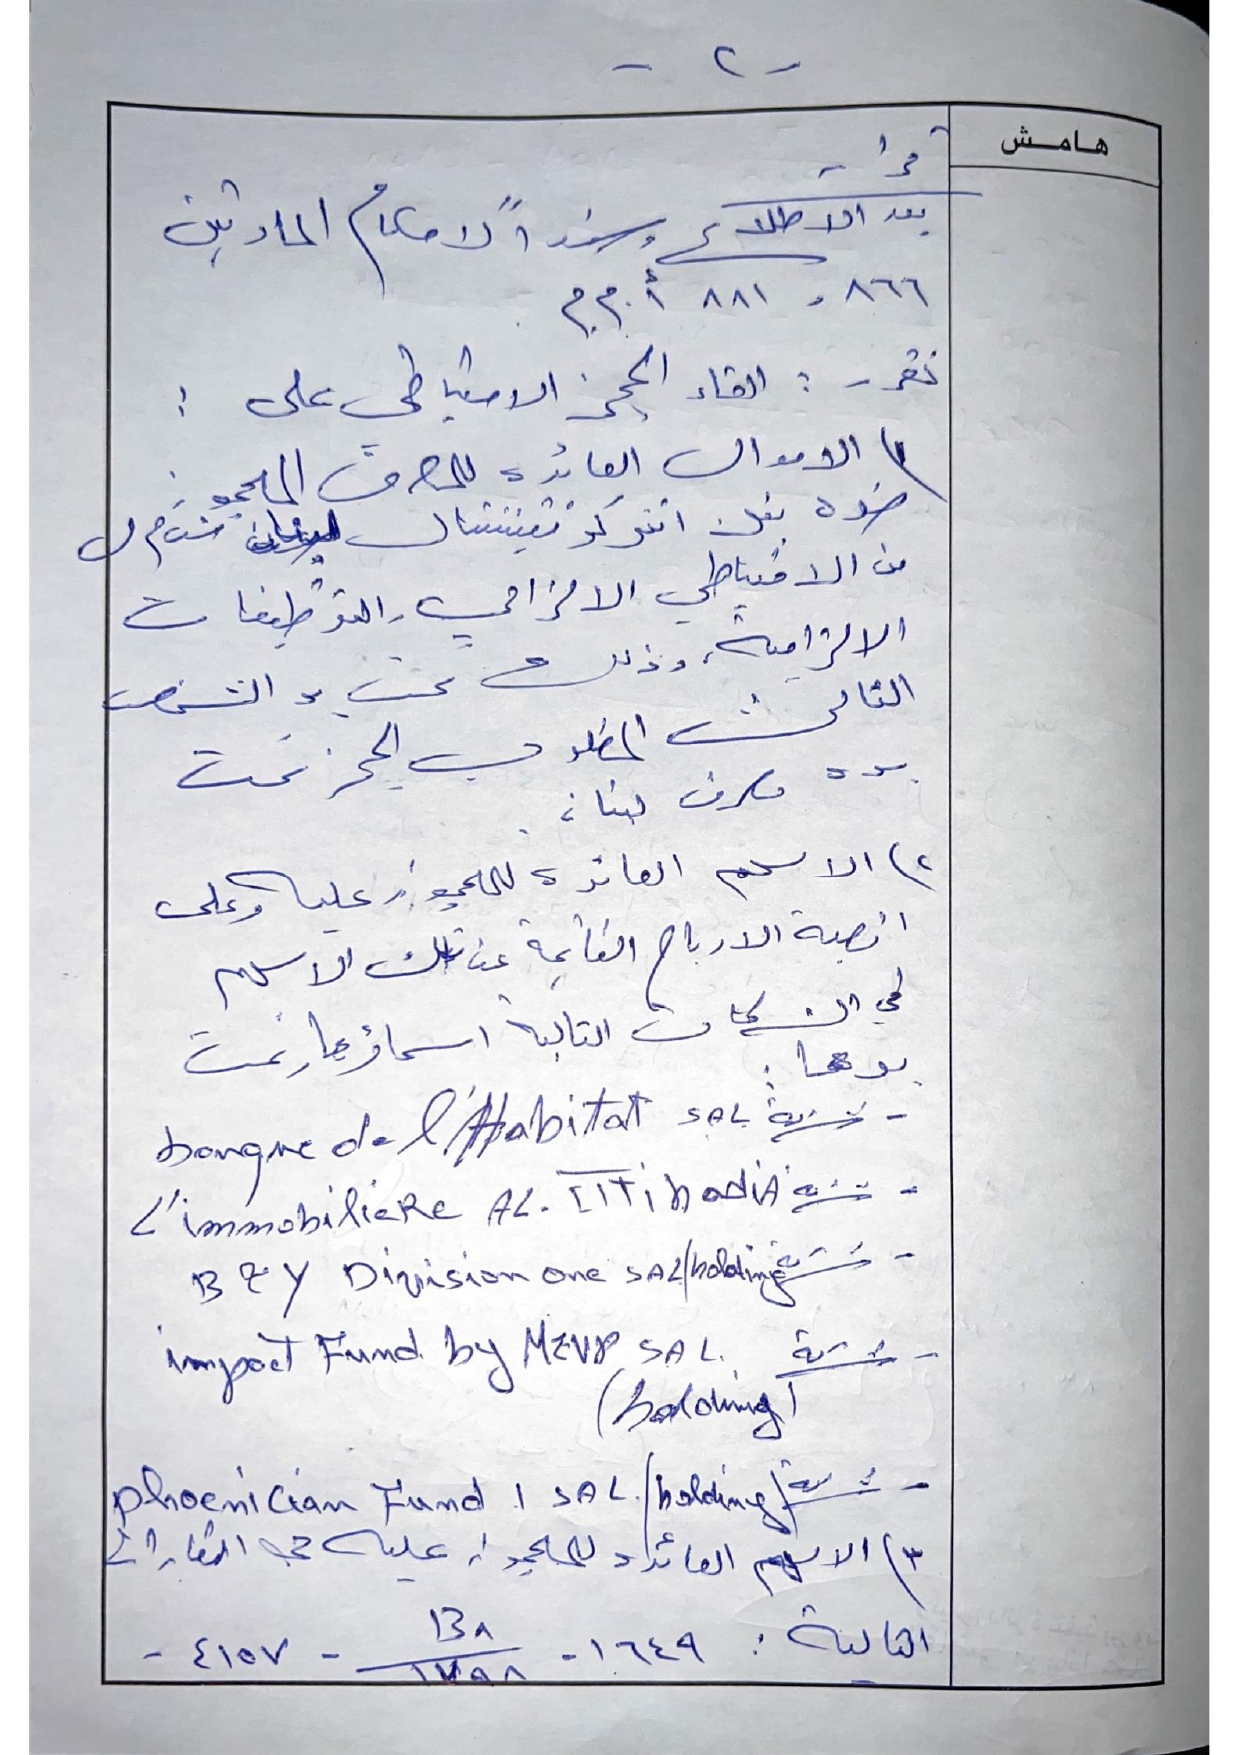 - ٢ -
هامش
قرار
بعد الاطلاع وسنداً لاحكام المادتين
٨٦٦ و ٨٨١ أ.م.م.
نقرر : القاء الحجز الاحتياطي على :
١) الاموال العائدة للمصرف المحجوز
ضده بنك انتركونتيننتال لبنان ش م ل
من الاحتياطي الالزامي والتوظيفات
الالزامية، وذلك تحت يد الشخص
الثالث المطلوب الحجز تحت
يده مصرف لبنان.
٢) الاسهم العائدة للمحجوز عليه وعلى
انصبة الارباح الناتجة عن تلك الاسهم
في الشركات التالية اسماؤها وتحت
يدها :
- شركة banque de l'Habitat SAL
- شركة L'immobilieRe AL. ITTihadiA
- شركة B & Y Division one SAL/holding
- شركة impact Fund by MEVP SAL.
(holding)
- شركة phoenician Fund 1 SAL./holding/
٣) الاسهم العائدة للمحجوز عليه في العقارات
التالية : ١٦٤٩ - B٨/١٧٩٨ - ٤١٥٧ -